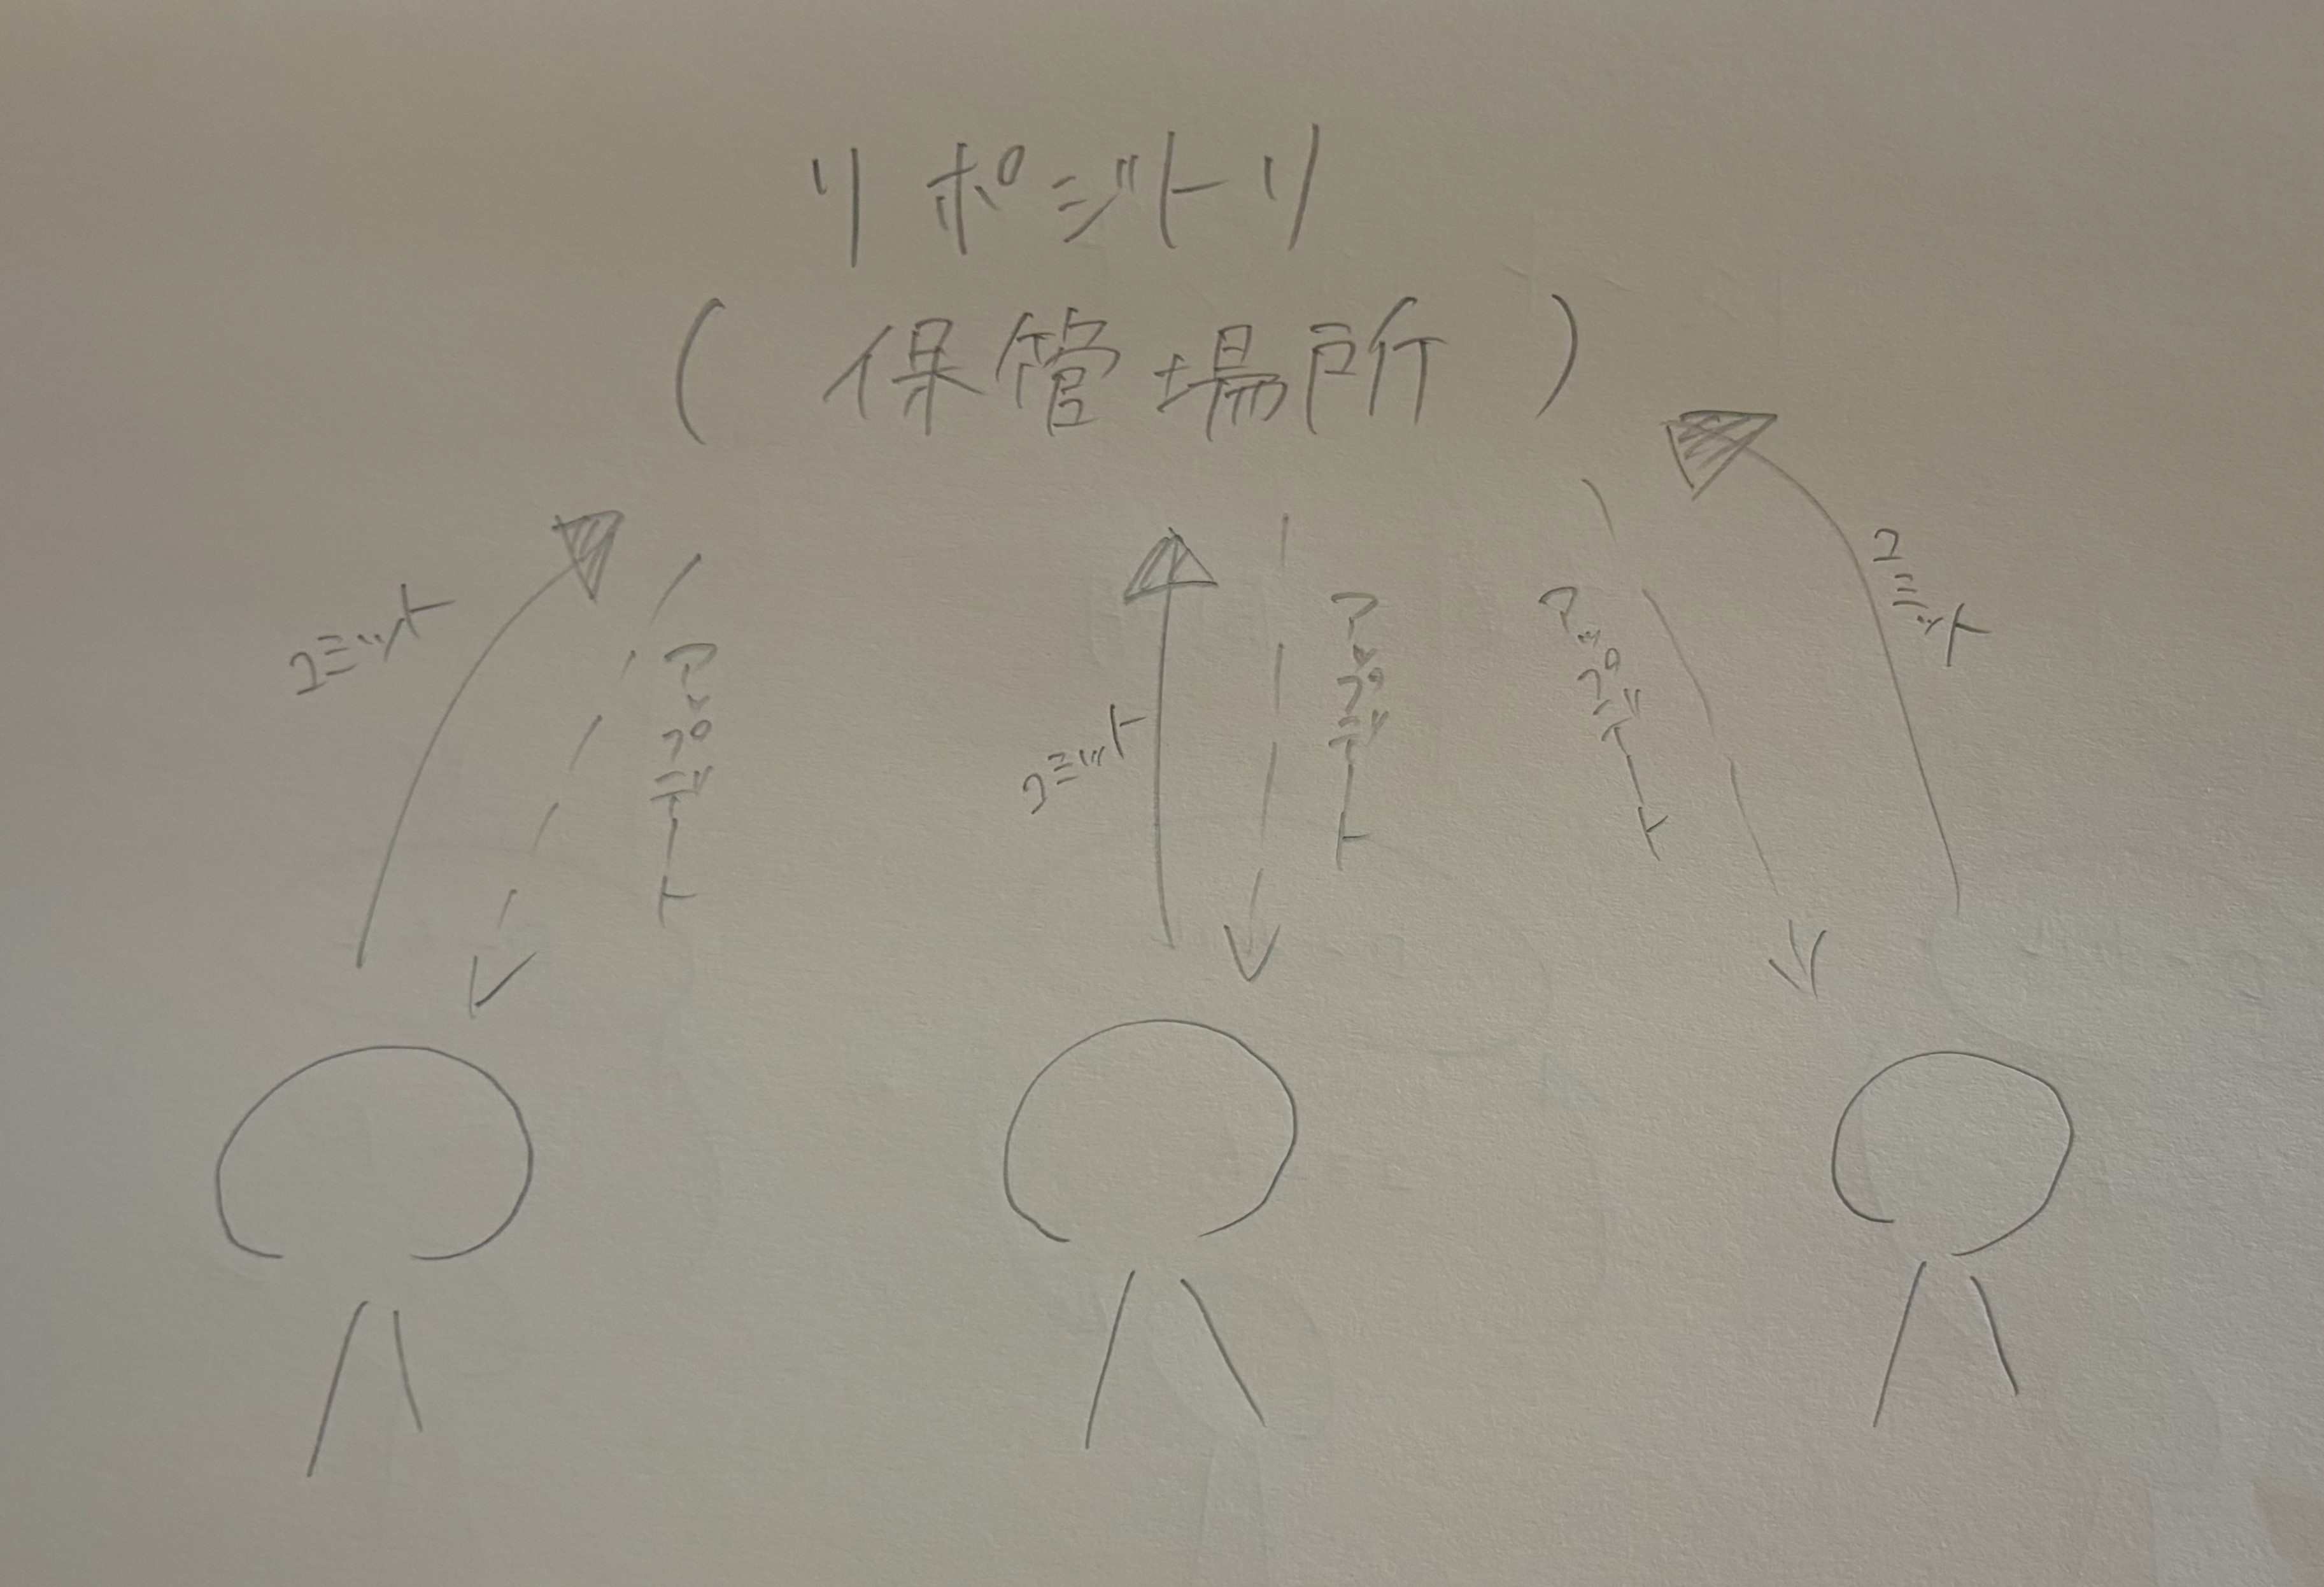 リポジトリ
(保管場所)
コミット
アップデート
コミット
アップデート
アップデート
コミット